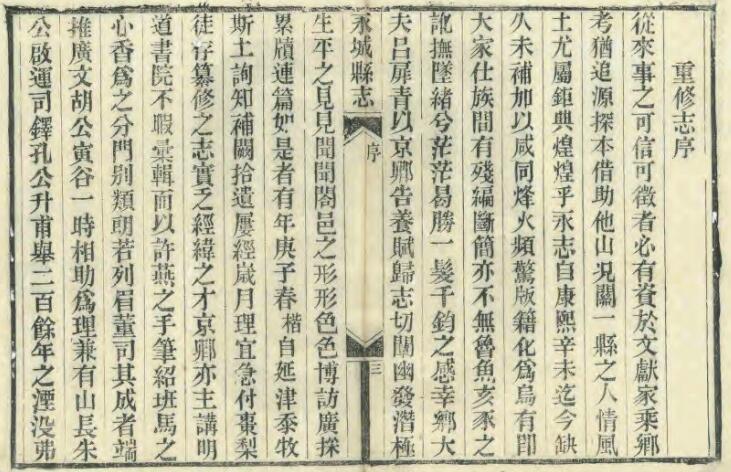 重修志序
從來事之可信可徵者必有資於文獻家乘鄉
考猶追源探本借助他山况關一縣之人情風
土尤屬鉅典煌煌乎永志自康熙辛未迄今缺
久未補加以咸同烽火頻驚版籍化爲烏有即
大家仕族間有殘編斷簡亦不無魯魚亥豕之
訛撫墜緒兮茫茫曷勝一髮千鈞之感幸鄉大
夫呂犀青以京卿告養賦歸志切闡幽發潛極
永城縣志
序
三
生平之見見聞聞閤邑之形形色色博訪廣採
累牘連篇如是者有年庚子春楷自延津忝牧
斯土詢知補闕拾遺屢經歲月理宜急付棗梨
徒存纂修之志實乏經緯之才京卿亦主講明
道書院不暇彙輯而以許燕之手筆紹班馬之
心香爲之分門别類朗若列眉董司其成者端
推廣文胡公寅谷一時相助爲理兼有山長朱
公啟運司鐸孔公升甫舉二百餘年之湮没弗